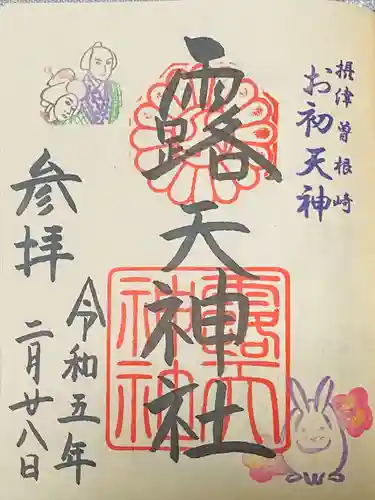 摂津曽根崎
お初天神
露天神社
露天
神社
参拝
令和五年
二月廿八日